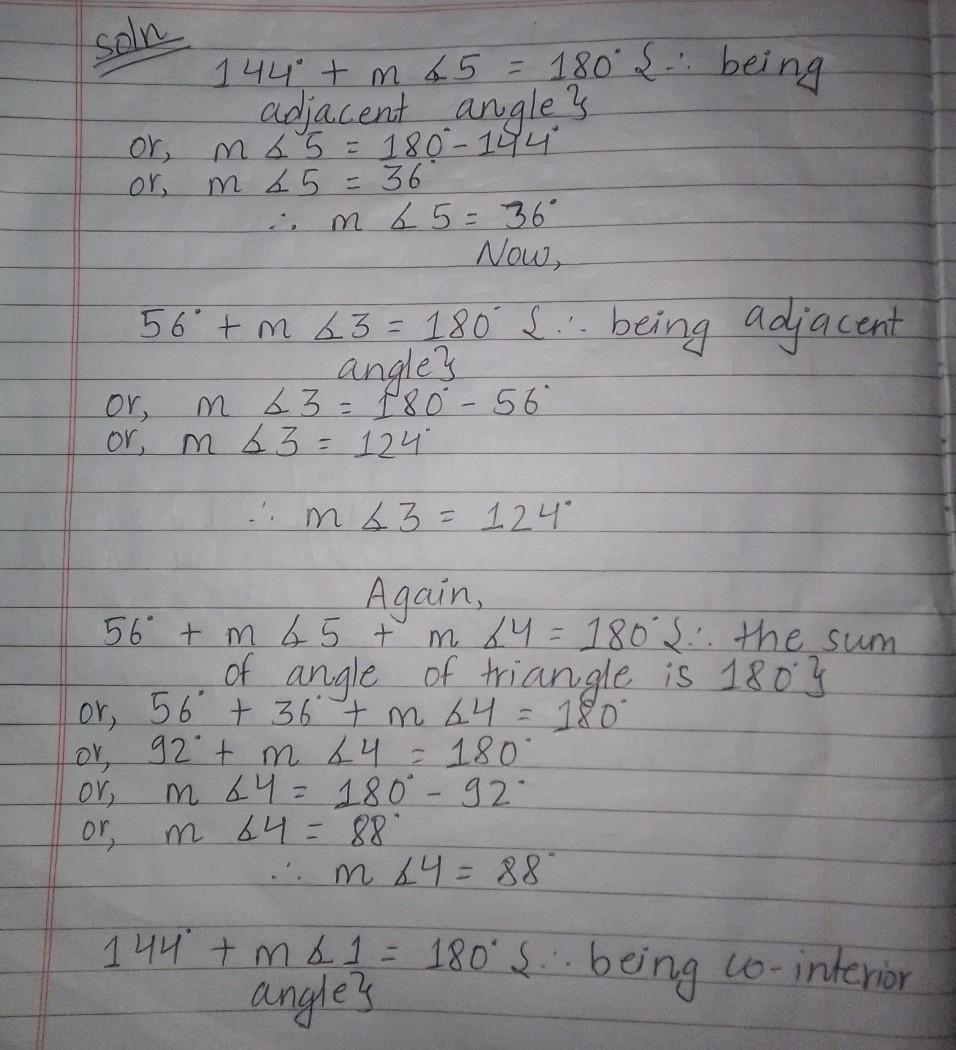 soln
144° + m ∡5 = 180° {∴ being
adjacent angle}
or, m ∡5 = 180° - 144°
or, m ∡5 = 36°
∴ m ∡5 = 36°
Now,
56° + m ∡3 = 180° {∴ being adjacent
angle}
or, m ∡3 = 180° - 56°
or, m ∡3 = 124°
∴ m ∡3 = 124°
Again,
56° + m ∡5 + m ∡4 = 180° {∴ the sum
of angle of triangle is 180°}
or, 56° + 36° + m ∡4 = 180°
or, 92° + m ∡4 = 180°
or, m ∡4 = 180° - 92°
or, m ∡4 = 88°
∴ m ∡4 = 88°
144° + m ∡1 = 180° {∴ being co-interior
angle}